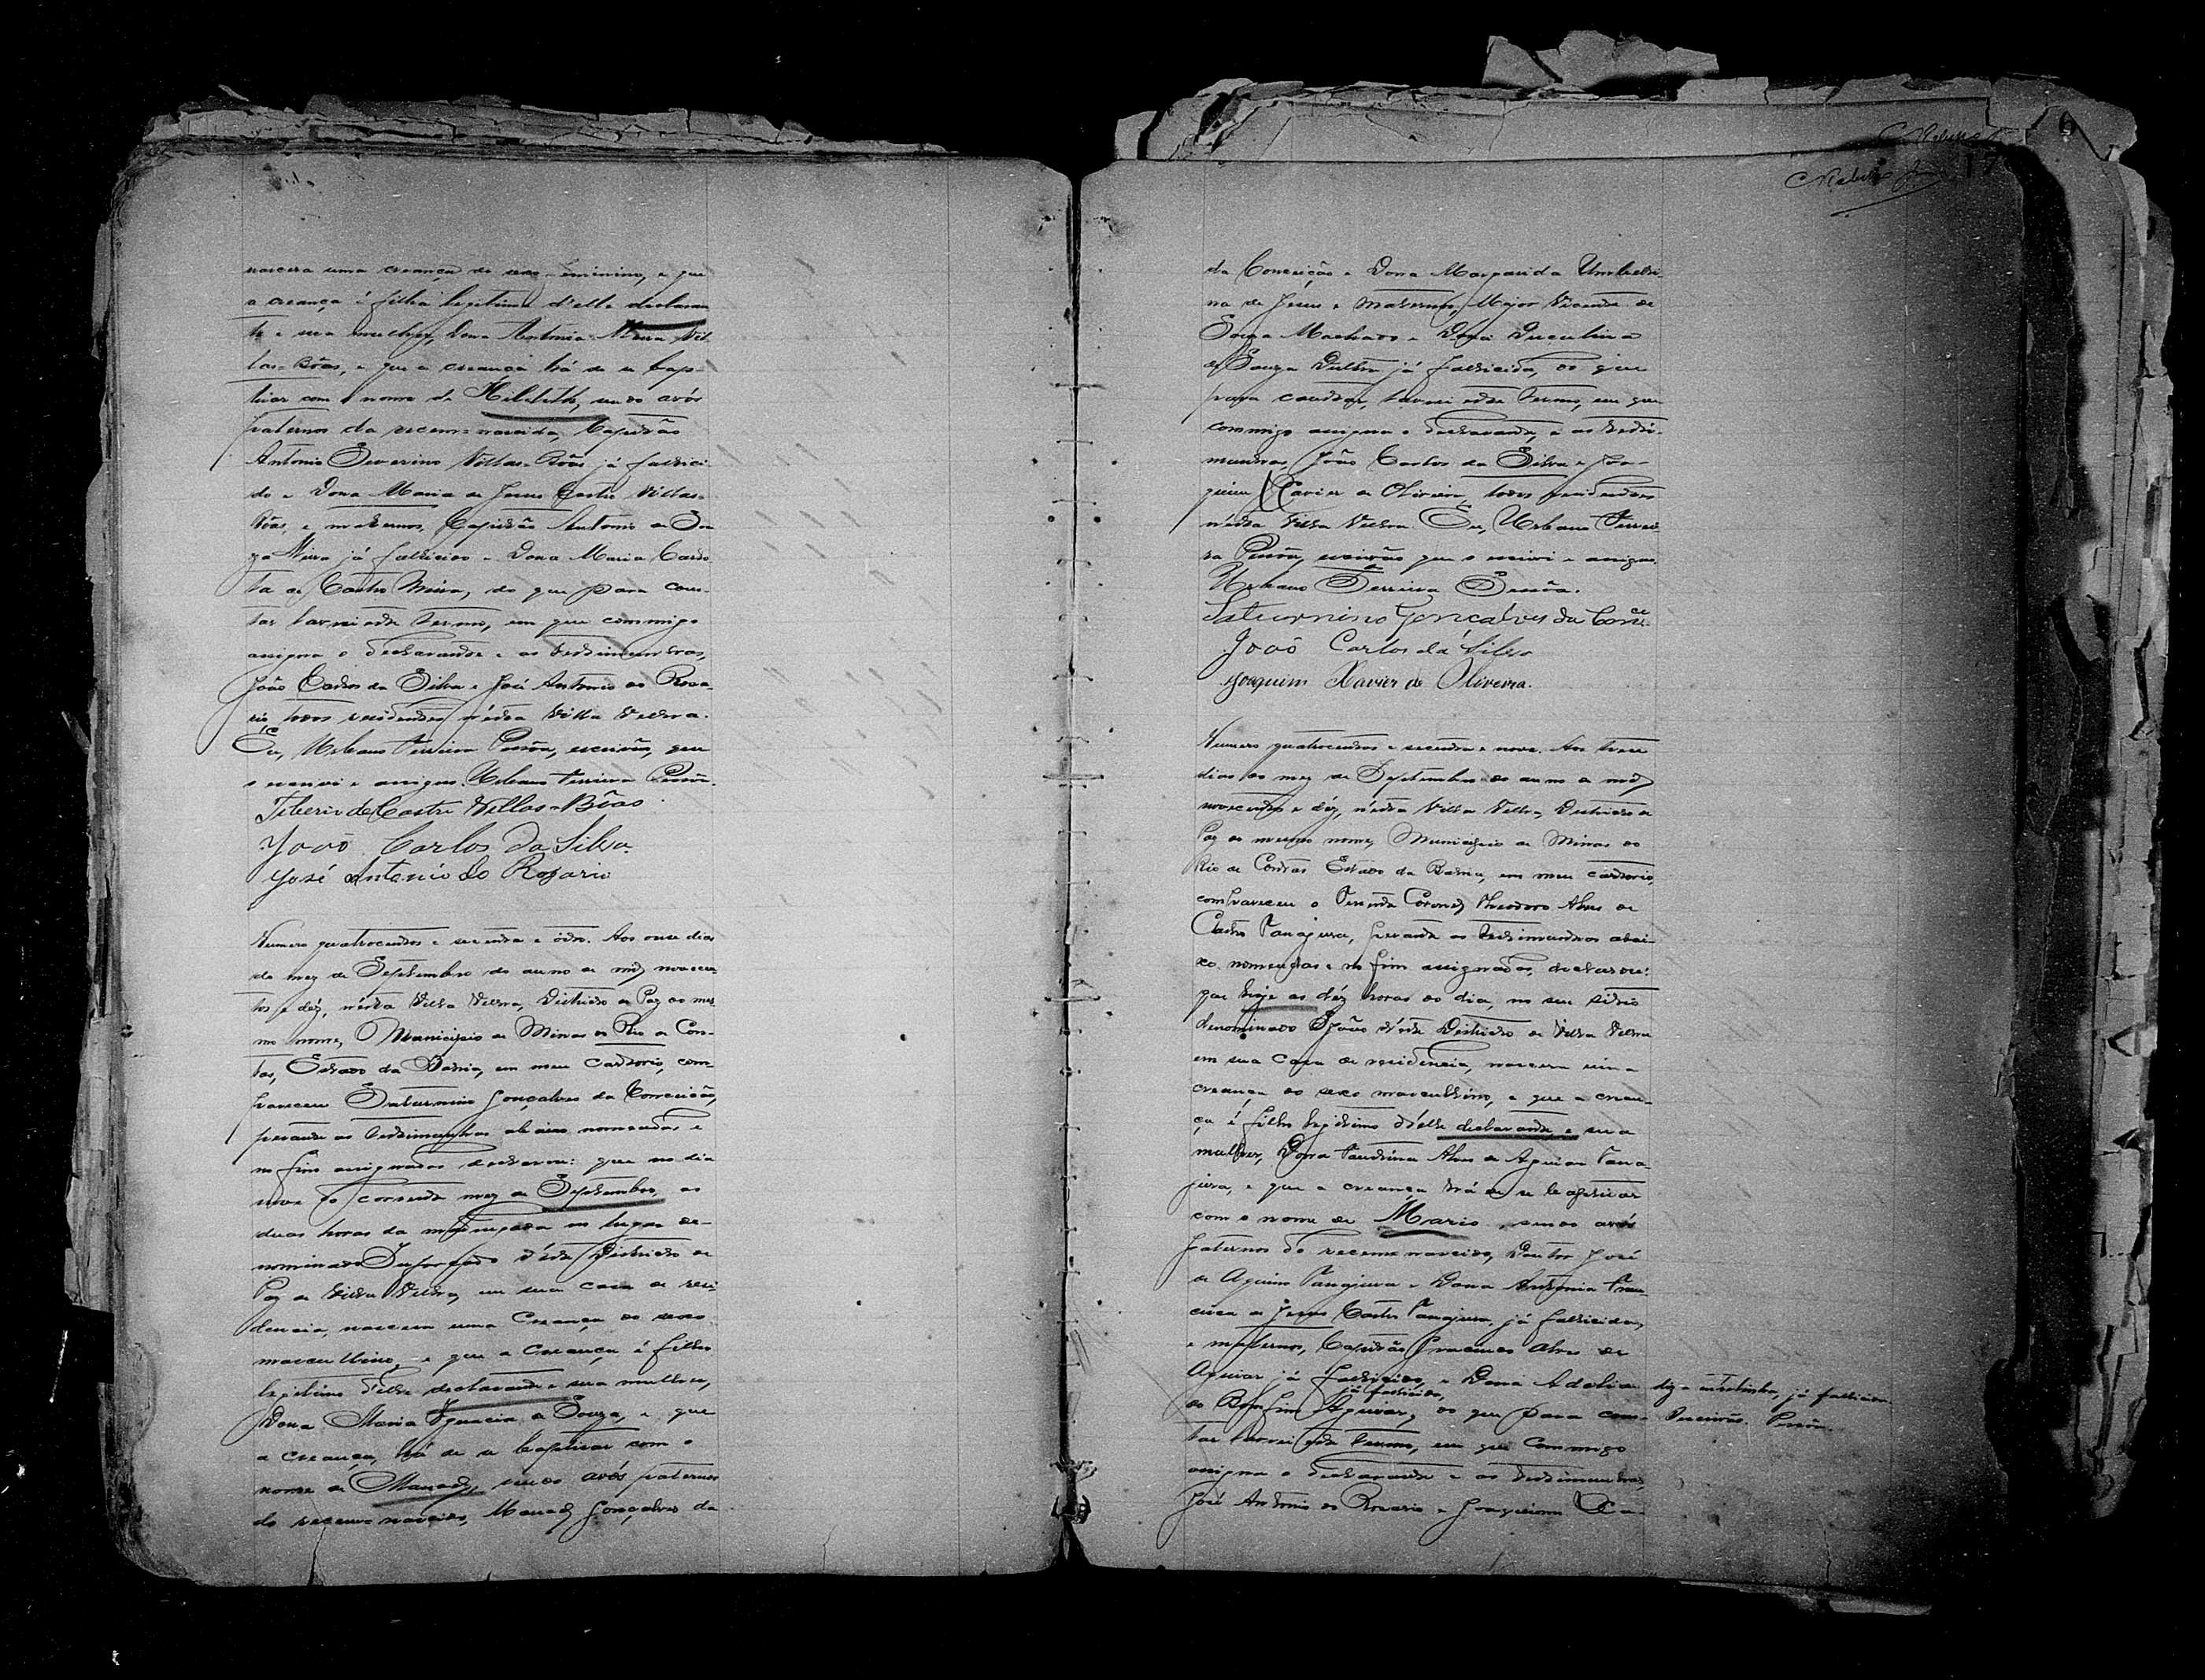 nascera uma creança do sexo feminino, e que
a creança é filha legitima d'elle declaran-
te e sua mulher, Dona Antonia Meira Vil-
las-Bôas, e que a creança há de se bap-
tisar com o nome de Hildeth, sendo avós
paternos da recem-nascida, Capitão
Antonio Severino Villas-Bôas já falleci-
do e Dona Maria de Jesus Castro Villas-
Bôas, e maternos, Capitão Antonio de Sou
za Meira já fallecido e Dona Maria Carlo
ta de Castro Meira, do que para cons-
tar lavrei este termo, em que commigo
assigna o declarante e as testimunhas,
João Carlos da Silva e José Antonio do Rosa-
rio todos residentes n'esta Villa Velha.
Eu, Urbano Ferreira Pessôa, escrivão, que
o escrevi e assigno. Urbano Ferreira Pessôa.
Tiberio de Castro Villas-Bôas.
João Carlos da Silva.
José Antonio do Rosario
Numero quatrocentos e secenta e oito. Aos onse dias
do mez de Septembro do anno de mil novecen
tos e déz, n'esta Villa Velha, Districto de Paz do mes
mo nome, Municipio de Minas do Rio de Con-
tas, Estado da Bahia, em meu cartorio, com-
pareceu Saturnino Gonçalves da Conceição,
perante as testimunhas abaixo nomeadas e
no fim assignadas declarou: que no dia
nove do corrente mez de Septembro, as
duas horas da madrugada no lugar de-
nominado d'este Districto de
Paz de Villa Velha, em sua casa de resi-
dencia, nascera uma creança do sexo
masculino, e que a creança é filho
legitimo d'elle declarante e sua mulher,
Dona Maria Ignacia de Souza, e que
a creança, há de se baptisar com o
nome de Manoel, sendo avós paternos
do recem-nascido, Manoel Gonçalves da
da Conceição e Dona Margarida Umbeli-
na de Jesus e maternos, Major Vicente de
Souza Machado e Dona
de Souza já fallecida, do que
para constar, lavrei este termo, em que
commigo assigna o declarante, e as testi-
munhas João Carlos da Silva e Joa-
quim Xavier de Oliveira, todos residentes
n'esta Villa Velha. Eu, Urbano Ferrei-
ra Pessôa, escrivão que o escrevi e assigno.
Urbano Ferreira Pessôa.
Saturnino Gonçalves da Conc.ce
João Carlos da Silva
Joaquim Xavier de Oliveira.
Numero quatrocentos e secenta e nove. Aos treze
dias do mez de Septembro do anno de mil
novecentos e déz, n'esta Villa Velha, Districto de
Paz do mesmo nome, Municipio de Minas do
Rio de Contas Estado da Bahia, em meu cartorio,
compareceu o Tenente Coronel Theodoro Alves de
Castro Tanajura, perante as testimunhas abai-
xo nomeadas e no fim assignadas, declarou:
que hoje as déz horas do dia, no seu sitio
denominado d'este Districto de Villa Velha
em sua casa de residencia, nascera uma
creança do sexo masculino, e que a crean-
ça é filho legitimo d'elle declarante e sua
mulher, Dona Alves de Aguiar Tana
jura, e que a creança há de se baptisar
com o nome de Mario, sendo avós
paternos do recem nascido, Doutor José
de Aquino Tanajura e Dona Antonia Fran
cisca de Jesus Castro Tanajura, já fallecidos,
e maternos, Capitão Alves de
Aguiar já fallecido, e Dona Adelia
já fallecida,
do Bomfim Aguiar, do que para cons-
tar lavrei este termo, em que commigo
assigna o declarante e as testimunhas,
José Antonio do Rosario e Joaquim Xa-
diz a entrelinha, já fallecida.
Escrivão. Pessôa.